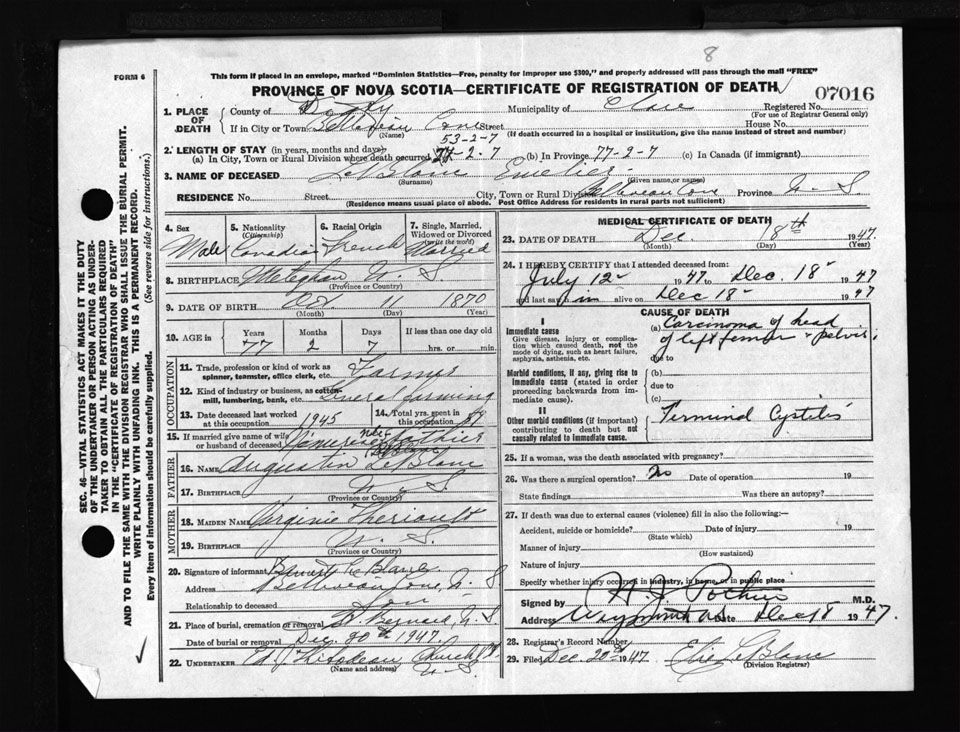 8
FORM 6
This form if placed in an envelope, marked "Dominion Statistics—Free, penalty for improper use $300," and properly addressed will pass through the mail "FREE"
PROVINCE OF NOVA SCOTIA—CERTIFICATE OF REGISTRATION OF DEATH
07016
1. PLACE OF DEATH
County of Digby Municipality of Clare Registered No.
(For use of Registrar General only)
If in City or Town Belliveau Cove Street House No.
(Name) (If death occurred in a hospital or institution, give the name instead of street and number)
53-2-7
2. LENGTH OF STAY (in years, months and days)
(a) In City, Town or Rural Division where death occurred 77-2-7 (b) In Province 77-2-7 (c) In Canada (if immigrant)
3. NAME OF DECEASED LeBlanc
(Surname) (Given name, or names)
RESIDENCE No. Street City, Town or Rural Division Belliveau Cove Province N. S.
(Residence means usual place of abode. Post Office Address for residents in rural parts not sufficient)
4. Sex
Male
5. Nationality
(Citizenship)
Canadian
6. Racial Origin
French
7. Single, Married, Widowed or Divorced
(write the word)
Married
8. BIRTHPLACE Meteghan N. S.
(Province or Country)
9. DATE OF BIRTH Oct 11 1870
(Month) (Day) (Year)
10. AGE in
Years Months Days If less than one day old
77 2 7 hrs. or min.
OCCUPATION
11. Trade, profession or kind of work as Farmer
spinner, teamster, office clerk, etc.
12. Kind of industry or business, as cotton-
mill, lumbering, bank, etc. General farming
13. Date deceased last worked
at this occupation 1945
14. Total yrs. spent in
this occupation
15. If married give name of wife
or husband of deceased
FATHER
16. NAME Augustin LeBlanc
17. BIRTHPLACE N. S.
(Province or Country)
MOTHER
18. MAIDEN NAME Virginie Theriault
19. BIRTHPLACE N. S.
(Province or Country)
20. Signature of informant LeBlanc
Address Belliveau Cove, N. S.
Relationship to deceased Son
21. Place of burial, cremation or removal St. Bernard, N. S.
Date of burial or removal Dec. 20th 1947.
22. UNDERTAKER Ed. Thibodeau Church Pt
(Name and address) N. S.
MEDICAL CERTIFICATE OF DEATH
23. DATE OF DEATH Dec. 18th 1947.
(Month) (Day) (Year)
24. I HEREBY CERTIFY that I attended deceased from:
July 12 1947 to Dec. 18 1947
and last saw him alive on Dec 18 1947
CAUSE OF DEATH
I
Immediate cause
Give disease, injury or complication which caused death, not the mode of dying, such as heart failure, asphyxia, asthenia, etc.
(a) Carcinoma of head
of left femur & pelvis
due to
Morbid conditions, if any, giving rise to immediate cause (stated in order proceeding backwards from immediate cause).
(b)
due to
(c)
II
Other morbid conditions (if important) contributing to death but not causally related to immediate cause.
Terminal Cystitis
25. If a woman, was the death associated with pregnancy?
26. Was there a surgical operation? No Date of operation 19
State findings Was there an autopsy?
27. If death was due to external causes (violence) fill in also the following:—
Accident, suicide or homicide? Date of injury 19
(State which)
Manner of injury
(How sustained)
Nature of injury
Specify whether injury occurred in industry, in home, or in public place
Signed by H. J. Pothier M.D.
Address Weymouth N.S. Date Dec 18 1947
28. Registrar's Record Number
29. Filed Dec. 20th 1947 Elie LeBlanc
(Division Registrar)
SEC. 46—VITAL STATISTICS ACT MAKES IT THE DUTY
OF THE UNDERTAKER OR PERSON ACTING AS UNDER-
TAKER TO OBTAIN ALL THE PARTICULARS REQUIRED
IN THE "CERTIFICATE OF REGISTRATION OF DEATH"
AND TO FILE THE SAME WITH THE DIVISION REGISTRAR WHO SHALL ISSUE THE BURIAL PERMIT.
WRITE PLAINLY WITH UNFADING INK. THIS IS A PERMANENT RECORD.
Every item of information should be carefully supplied. (See reverse side for instructions.)